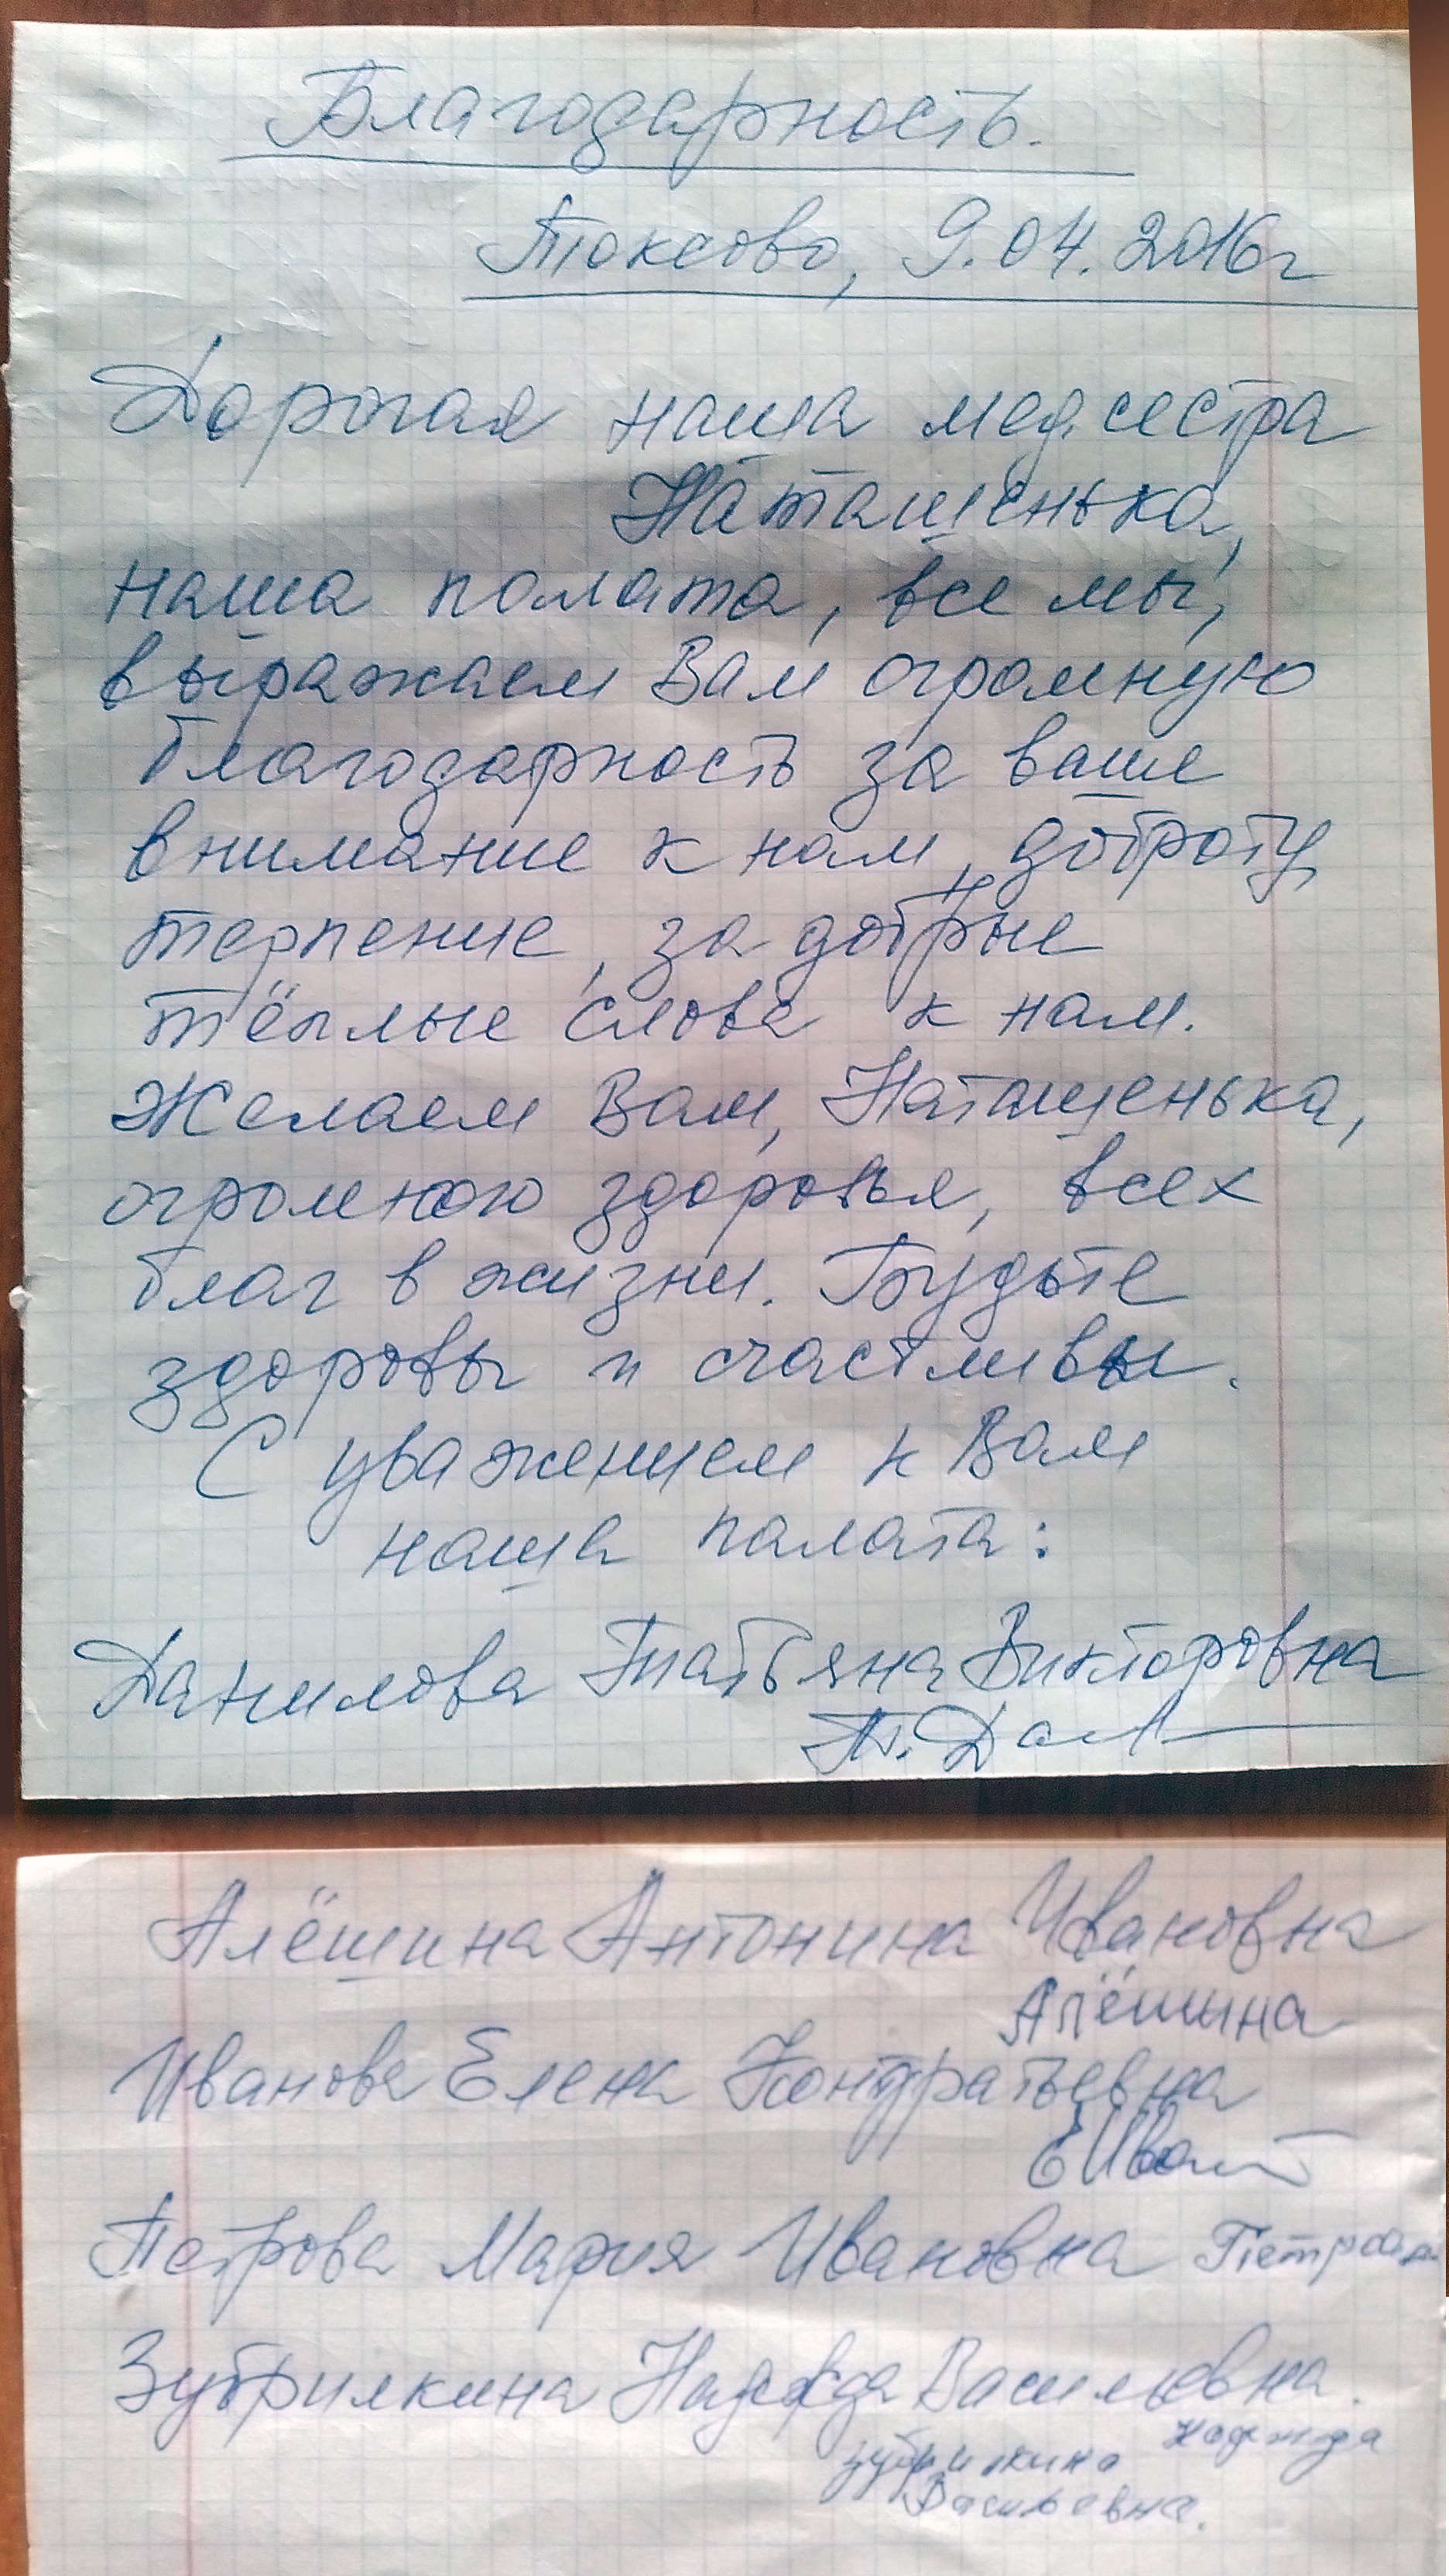 Благодарность.
Токсово, 9.04.2016г
Дорогая наша медсестра
Наташенька,
наша палата, все мы,
выражаем Вам огромную
благодарность за ваше
внимание к нам, доброту
терпение, за добрые
тёплые слова к нам.
Желаем Вам, Наташенька,
огромного здоровья, всех
благ в жизни. Будьте
здоровы и счастливы.
С уважением к Вам
наша палата:
Данилова Татьяна Викторовна
Т. Дан
Алёшина Антонина Ивановна
Алёшина
Иванова Елена Кондратьевна
ЕИван
Петрова Мария Ивановна Петрова
Зубрилкина Надежда Васильевна.
Зубрилкина Надежда
Васильевна.